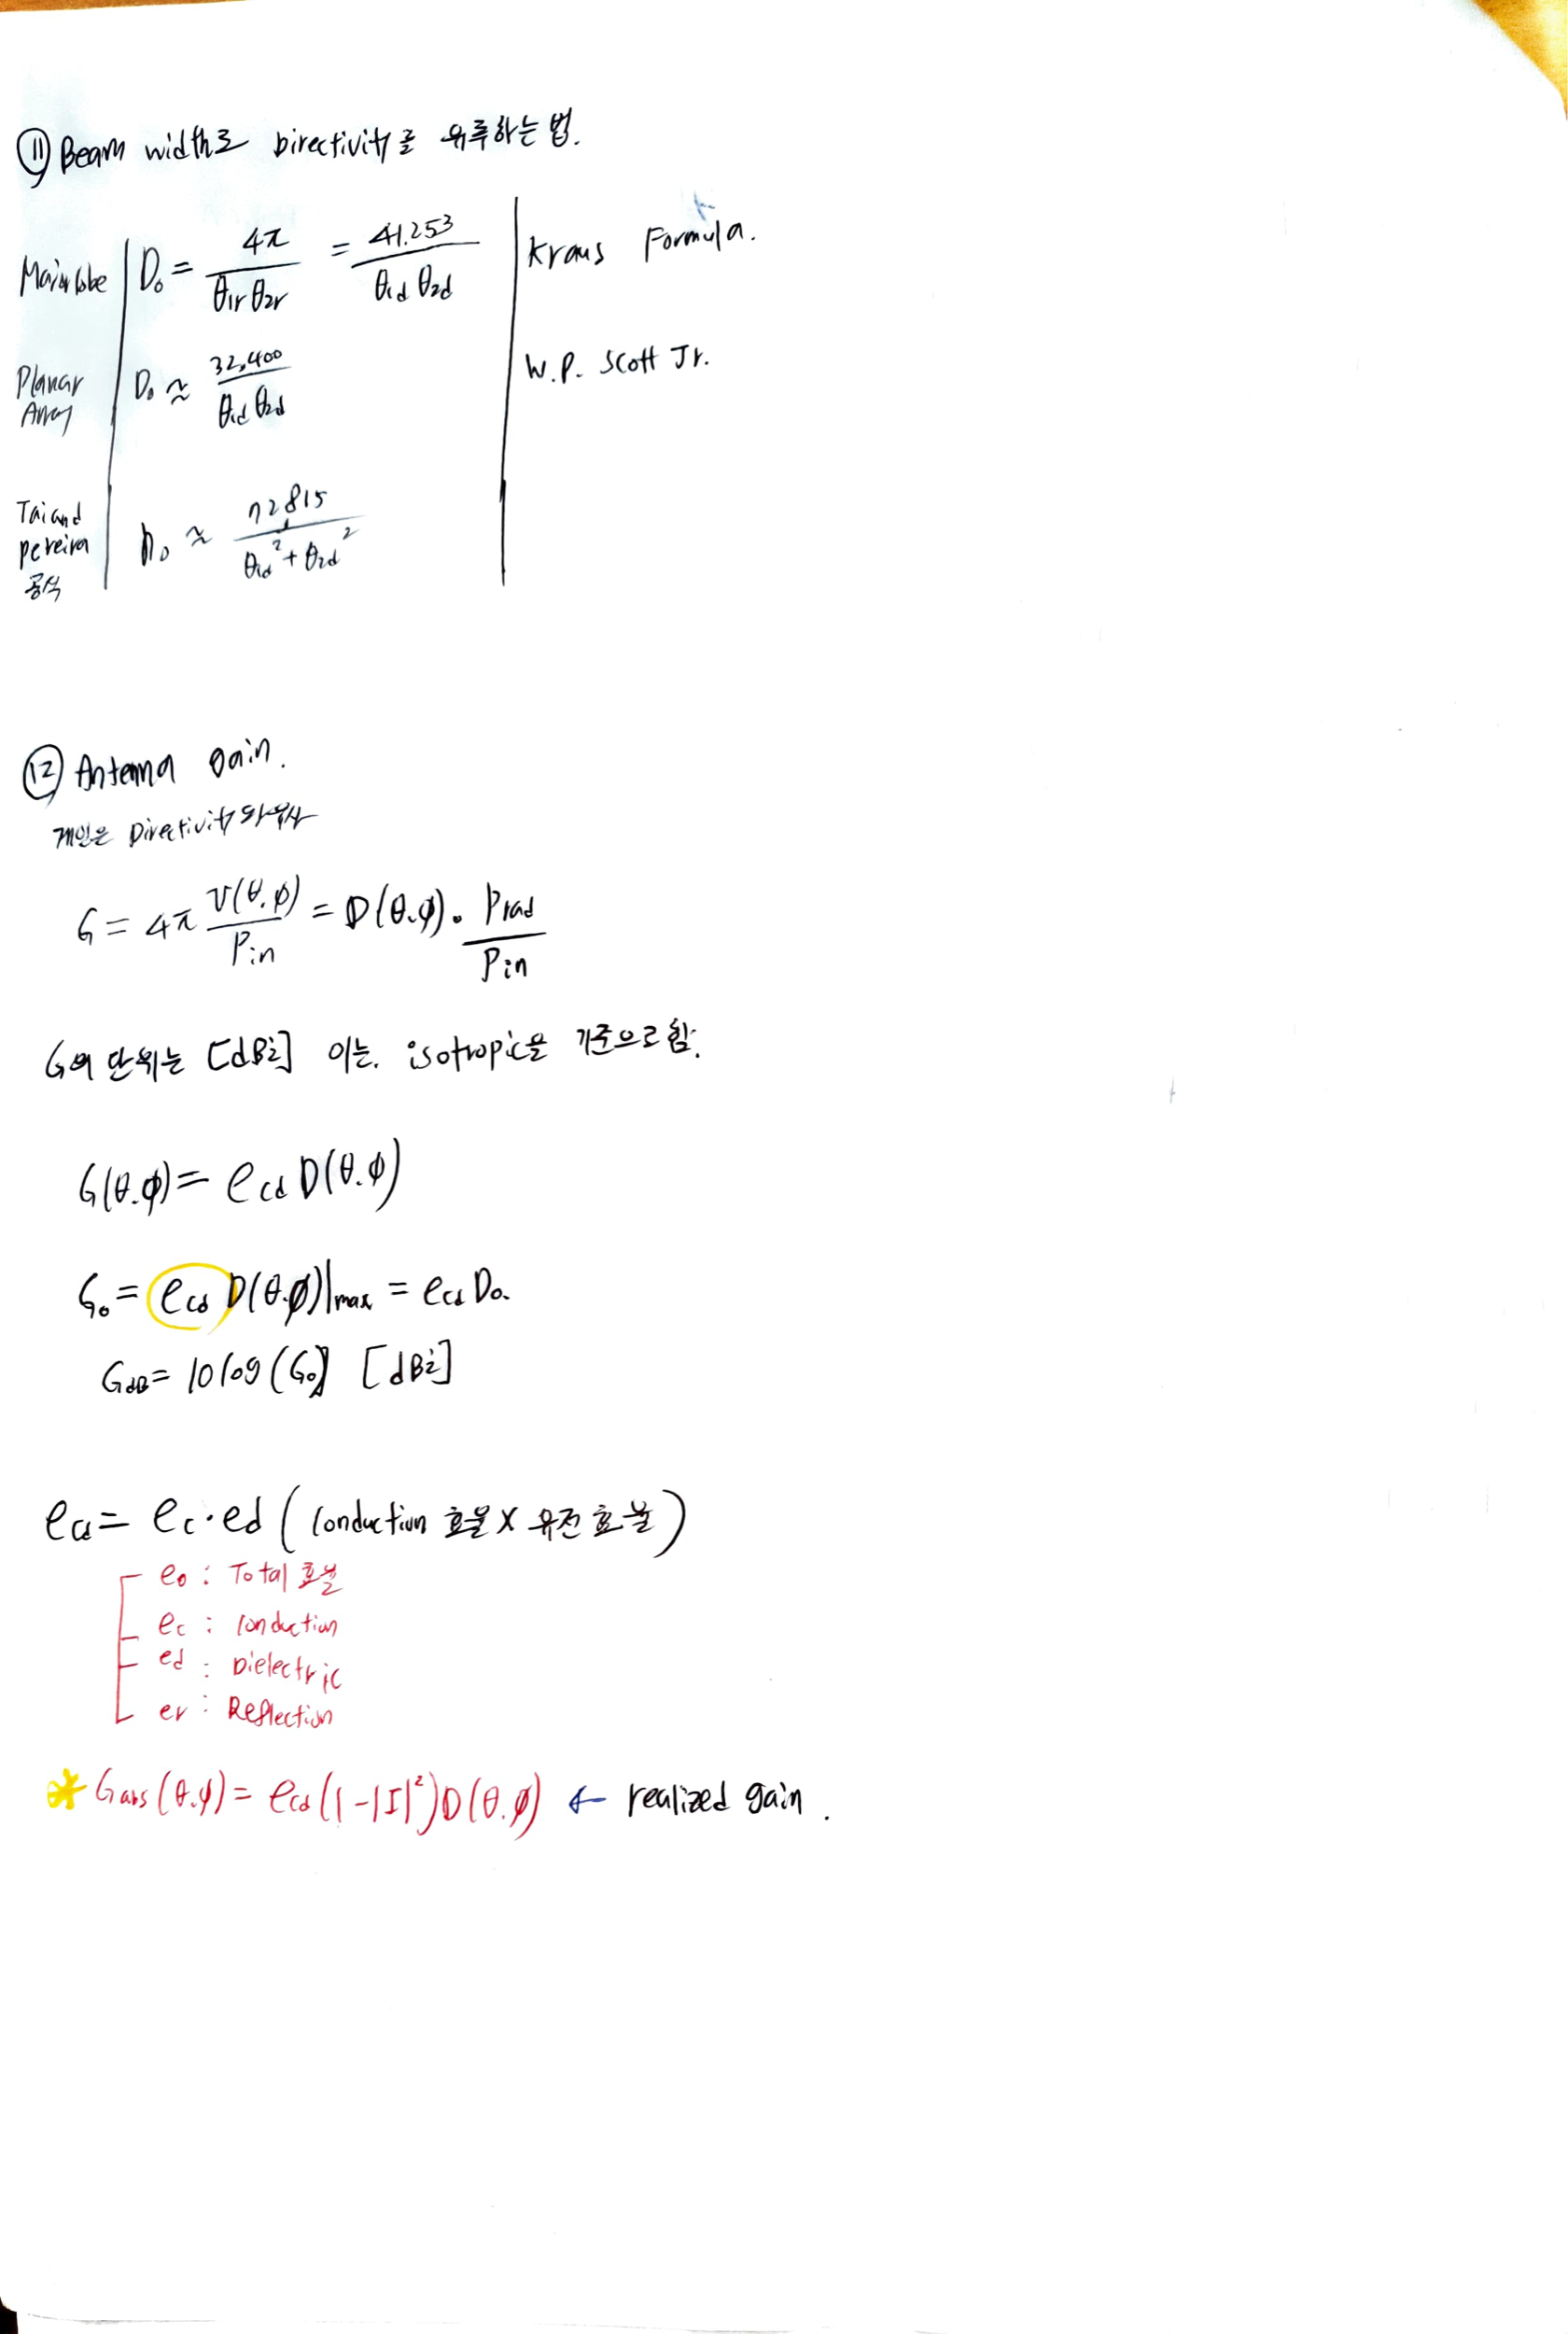 ⑪ Beam width로 Directivity를 유추하는 법.
Main lobe | D₀ = 4π / θ1r θ2r = 41.253 / θ1d θ2d | Kraus Formula.
Planar Array | D₀ ≈ 32,400 / θ1d θ2d | W.P. Scott Jr.
Tai and pereira 공식 | D₀ ≈ 72,815 / θ1d² + θ2d²
⑫ Antenna gain.
게인은 Directivity와 유사
G = 4π U(θ.φ) / Pin = D(θ.φ) · Prad / Pin
G의 단위는 [dBi] 이는. isotropic을 기준으로 함.
G(θ.φ) = ecd D(θ.φ)
G₀ = ecd D(θ.φ)|max = ecd D₀.
GdB = 10 log (G₀) [dBi]
ecd = ec · ed ( Conduction 효율 X 유전 효율 )
e₀ : Total 효율
ec : Conduction
ed : Dielectric
er : Reflection
* Gabs (θ.φ) = ecd (1-|Γ|²) D(θ.φ) ← realized gain .